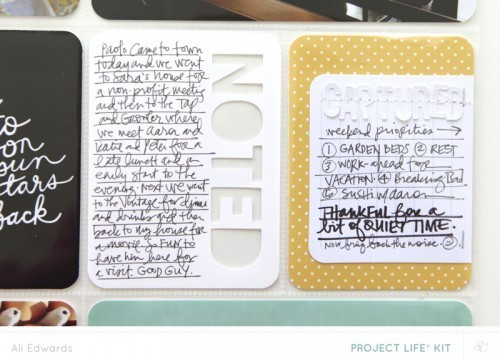 to
on
sun
stars
back
Paolo came to town
today and we went
to Sara's house for
a non-profit meeting
and then to the Tap
and Growler where
we meet Aaron and
Katie and Peter for a
late lunch and an
early start to the
evening. Next we went
to the Vintage for dinner
and drinks and then
back to my house for
a movie. So FUN to
have him here for
a visit. GOOD GUY.
NOTED
CAPTURED
weekend priorities →
① GARDEN BEDS ② REST
③ WORK-ahead for
VACATION ④ Breaking Bad
⑤ Sushi w/aaron
THANKFUL for a
bit of QUIET TIME.
Now bring back the noise.
Ali Edwards
PROJECT LIFE® KIT